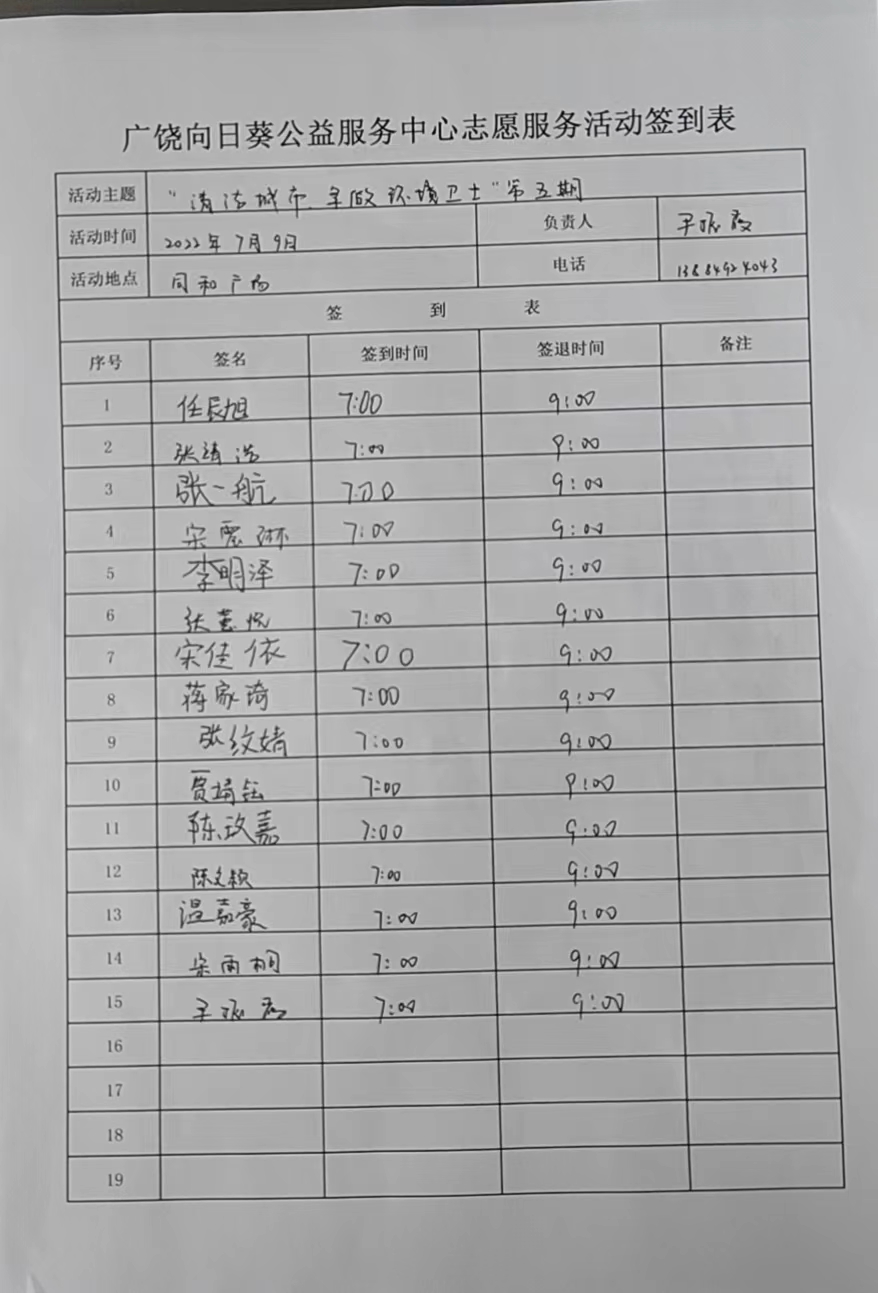 广饶向日葵公益服务中心志愿服务活动签到表
活动主题 "清洁城市 争做环境卫士"第五期
活动时间 2022年7月9日 负责人
活动地点 同和广场 电话
签 到 表
序号 签名 签到时间 签退时间 备注
1 任辰旭 7:00 9:00
2 张靖浩 7:00 9:00
3 张一航 7:00 9:00
4 宋 7:00 9:00
5 李明泽 7:00 9:00
6 张 悦 7:00 9:00
7 宋佳依 7:00 9:00
8 蒋家琦 7:00 9:00
9 张纹婧 7:00 9:00
10 贾 7:00 9:00
11 陈玫嘉 7:00 9:00
12 陈文颖 7:00 9:00
13 温嘉豪 7:00 9:00
14 宋雨桐 7:00 9:00
15 7:00 9:00
16
17
18
19